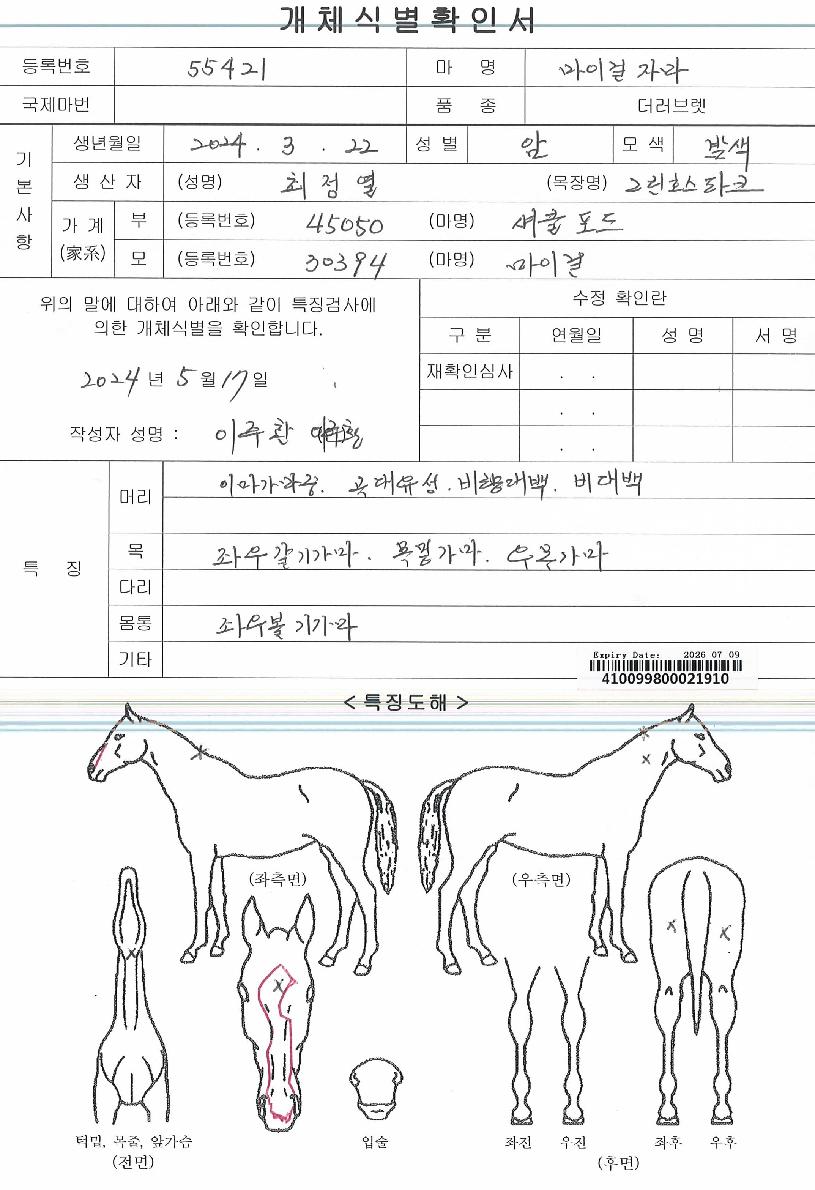 개체식별확인서
등록번호 55421 마 명 마이걸자라
국제마번 품 종 더러브렛
기본사항
생년월일 2024 . 3 . 22 성 별 암 모 색 밤색
생 산 자 (성명) 최정열 (목장명) 그린호스타크
가 계 (家系)
부 (등록번호) 45050 (마명) 섀클포드
모 (등록번호) 30394 (마명) 마이걸
위의 말에 대하여 아래와 같이 특징검사에
의한 개체식별을 확인합니다.
2024 년 5 월 17 일
작성자 성명 : 이주환
수정 확인란
구 분 연월일 성 명 서 명
재확인심사 . .
. .
. .
특 징
머리 이마가마중. 곡대유성. 비량대백. 비대백
목 좌우갈기가마. 목필가마. 우목가마
다리
몸통 좌우볼기가마
기타
Expiry Date: 2026 07 09
410099800021910
< 특징도해 >
(좌측면) (우측면)
턱밑, 목줄, 앞가슴
(전면)
입술
좌진 우진 좌후 우후
(후면)